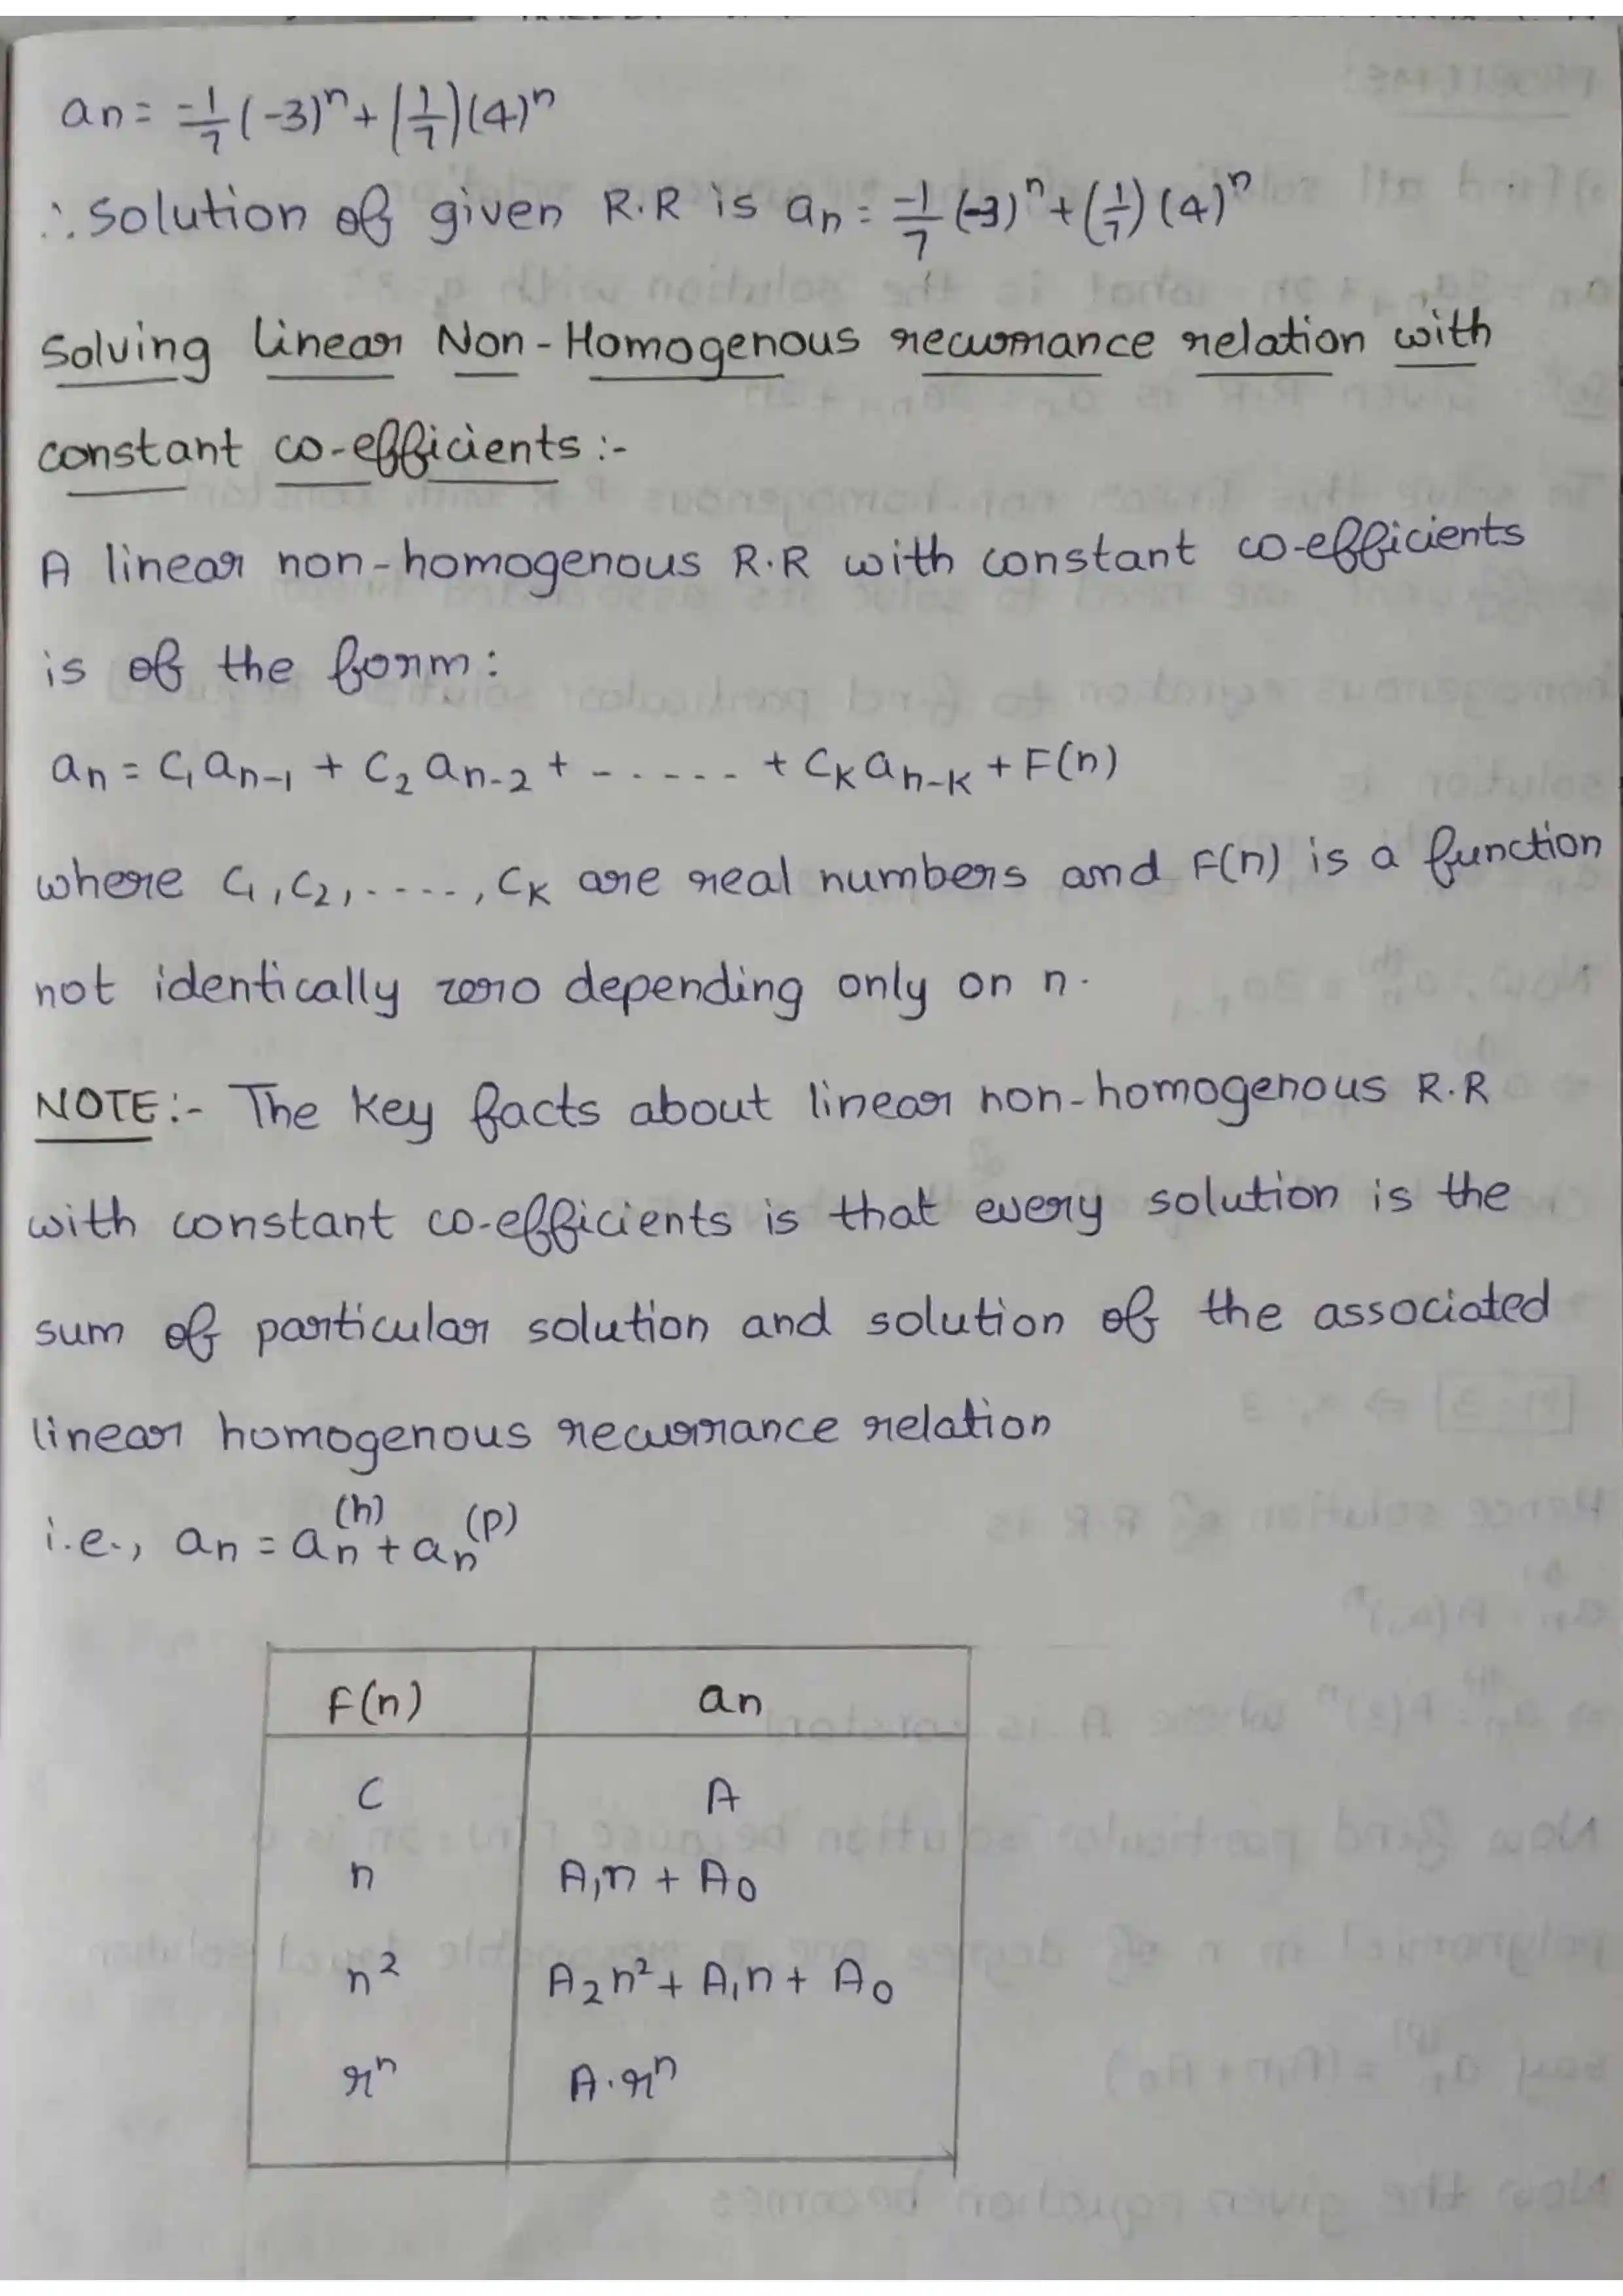 an = -1/7 (-3)^n + (1/7)(4)^n
∴ solution of given R.R is an = -1/7 (-3)^n + (1/7)(4)^n
Solving linear Non-Homogenous recurrance relation with
constant co-efficients :-
A linear non-homogenous R.R with constant co-efficients
is of the form:
an = C1 an-1 + C2 an-2 + - . - - - - + CK an-K + F(n)
where C1, C2, - - - -, CK are real numbers and F(n) is a function
not identically zero depending only on n.
NOTE :- The key facts about linear non-homogenous R.R
with constant co-efficients is that every solution is the
sum of particular solution and solution of the associated
linear homogenous recurrance relation
i.e., an = an^(h) + an^(P)
F(n) an
C A
n A1n + A0
n^2 A2n^2 + A1n + A0
r^n A.r^n